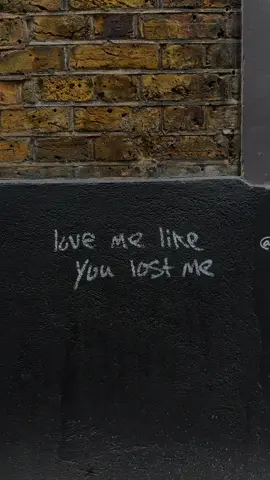 love me like
you lost me
@